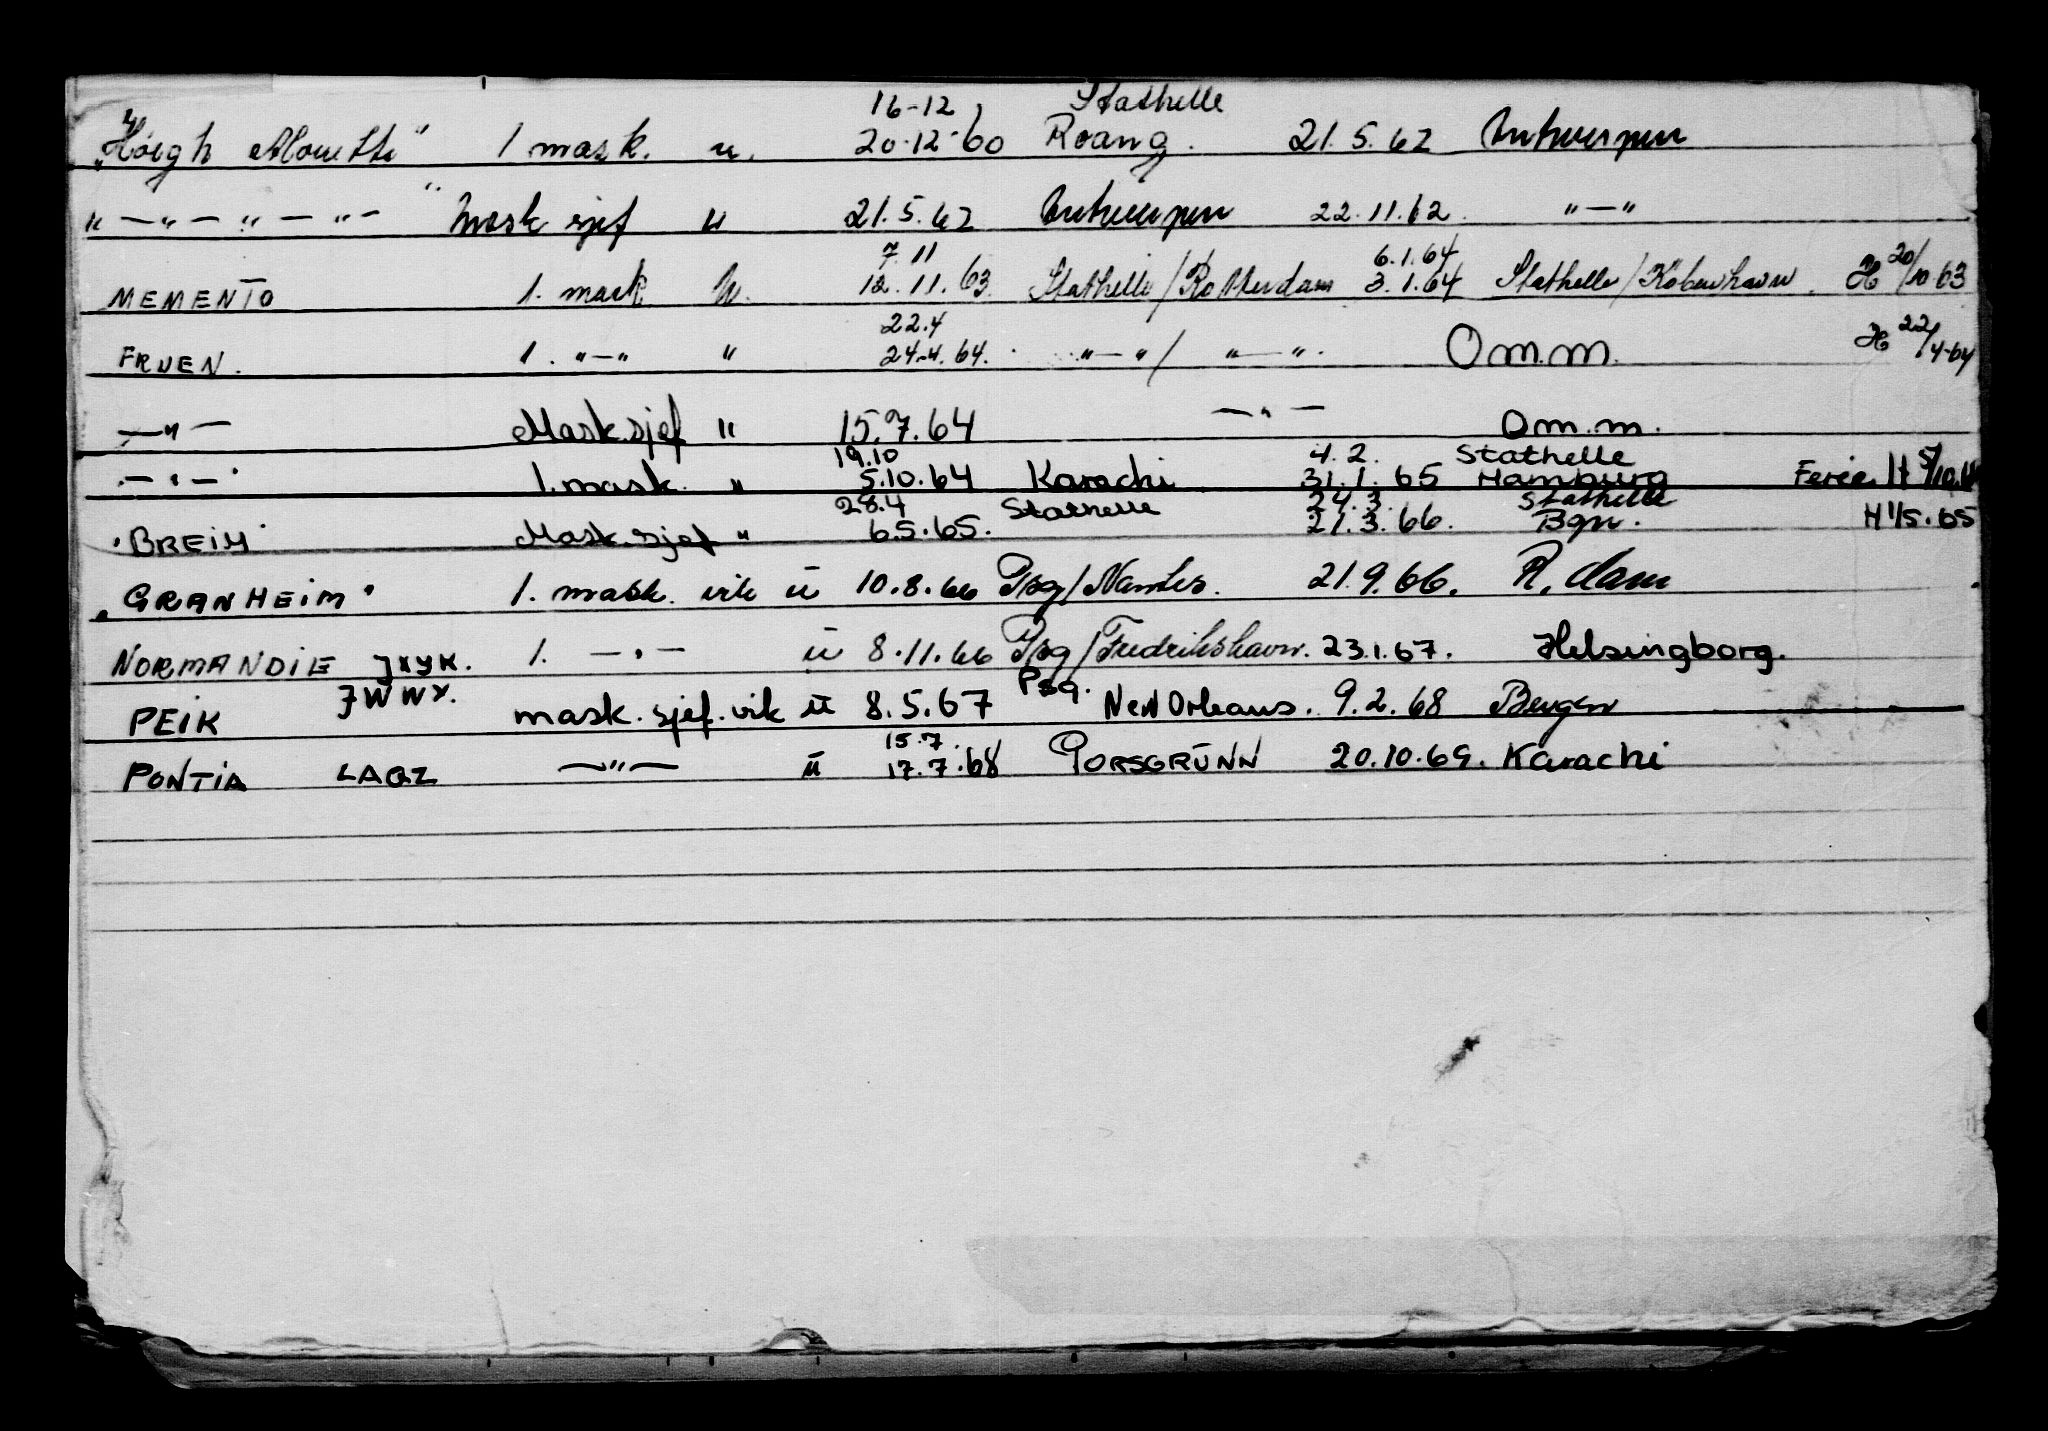 16-12 Stathelle
"Høegh Alouette" 1 mask. u. 20.12-60 Roang. 21.5.62 Antwerpen
" — " — " — " — Mask sjef " 21.5.62 Antwerpen 22.11.62. " — "
7.11 6.1.64
MEMENTO 1. mask U. 12.11.63. Stathelle/Rotterdam 3.1.64 Stathelle/København. H 20/10 63
22.4
FRUEN. 1. " — " " 24.4.64. " — " / " — " . O m.m. H 22/4-64
— " — Mask.sjef " 15.7.64 — " — O m.m.
19.10 4.2. Stathelle
— " — 1. mask. " 5.10.64 Karachi 31.1.65 Hamburg Ferie H 5/10.
28.4 Stathelle 24.3. Stathelle
"BREIM" Mask.sjef " 6.5.65. 21.3.66. Bgn. H 1/5.65
"GRANHEIM" 1. mask. vik ū 10.8.66 Psg/Nantes. 21.9.66. R.dam
NORMANDIE JXYK. 1. — " — ū 8.11.66 Psg/Fredrikshavn. 23.1.67. Helsingborg.
PEIK JWWX. mask.sjef.vik ū 8.5.67 Psg. New Orleans. 9.2.68 Bergen
15.7.
PONTIA LAQZ — " — ū 17.7.68 PORSGRŪNN 20.10.69. Karachi